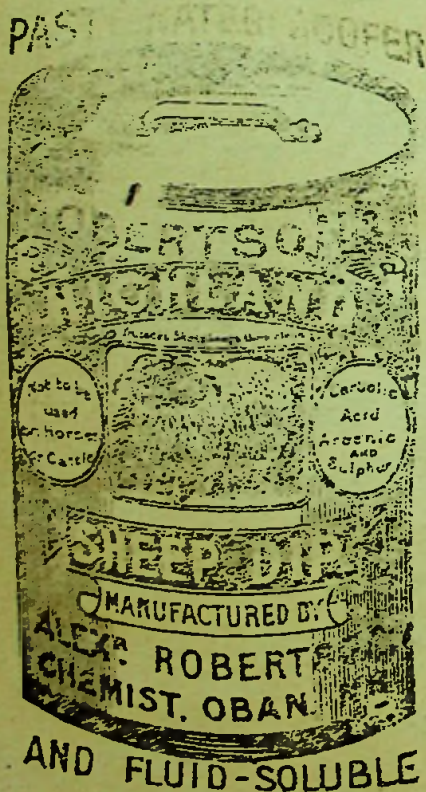 HIGHLAND
Not to be
used
on Horses
or Cattle
Carbolic
Acid
Arsenic
AND
Sulphur
SHEEP-DIP
MANUFACTURED BY
ALEXR. ROBERT
CHEMIST. OBAN.
AND FLUID-SOLUBLE